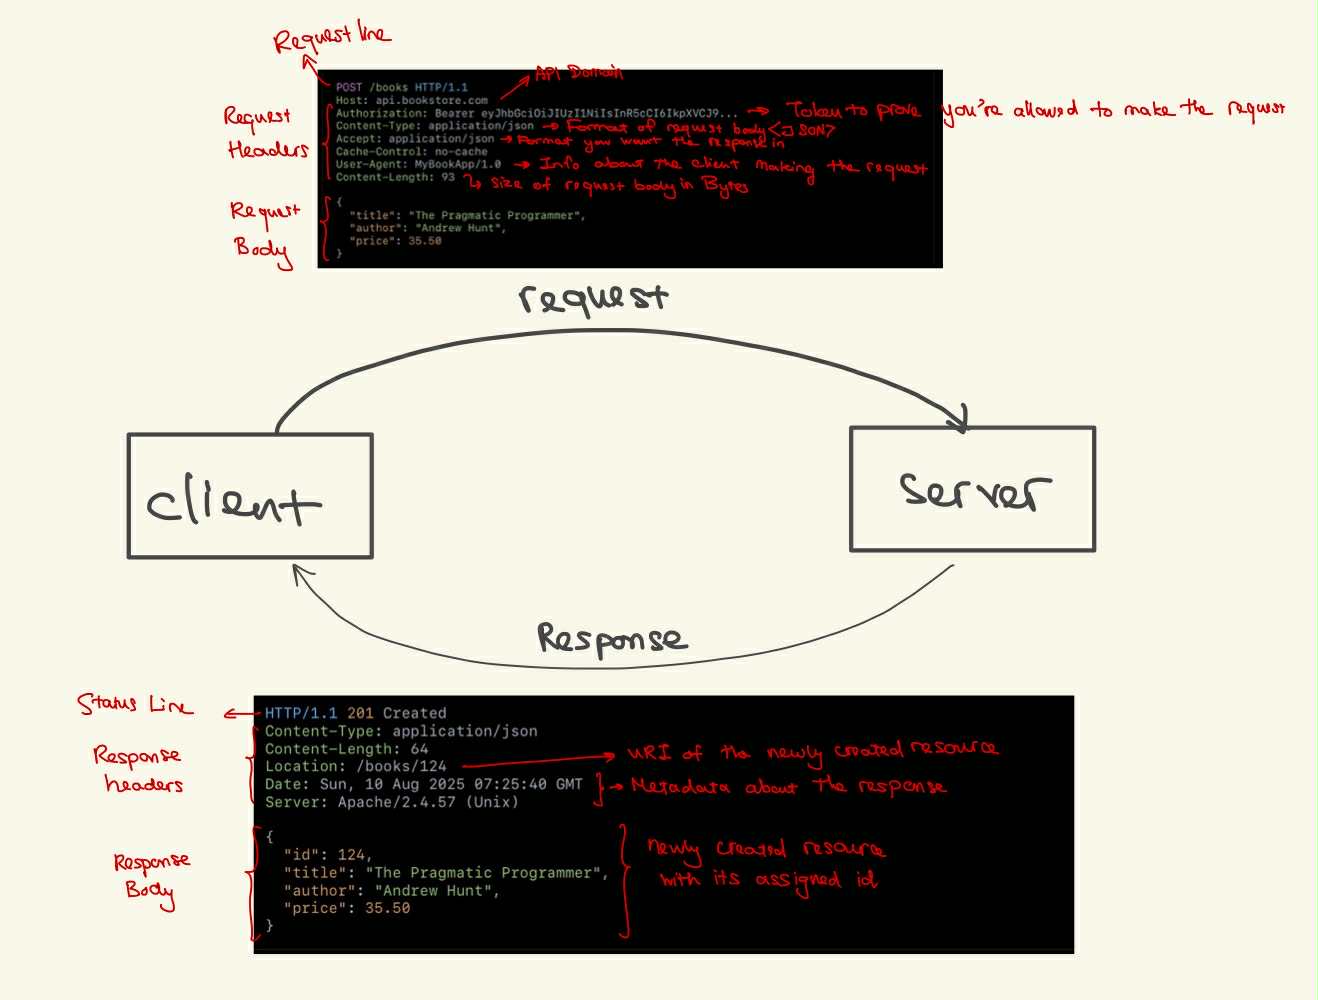 Request line
API Domain
POST /books HTTP/1.1
Host: api.bookstore.com
Request
Headers
Authorization: Bearer eyJhbGciOiJIUzI1NiIsInR5cCI6IkpXVCJ9... → Token to prove you're allowed to make the request
Content-Type: application/json → Format of request body <JSON>
Accept: application/json → Format you want the response in
Cache-Control: no-cache
User-Agent: MyBookApp/1.0 → Info about the client making the request
Content-Length: 93 → Size of request body in Bytes
Request
Body
{
"title": "The Pragmatic Programmer",
"author": "Andrew Hunt",
"price": 35.50
}
request
client
server
Response
Status Line
HTTP/1.1 201 Created
Response
headers
Content-Type: application/json
Content-Length: 64
Location: /books/124 → URI of the newly created resource
Date: Sun, 10 Aug 2025 07:25:40 GMT
Server: Apache/2.4.57 (Unix)
→ Metadata about the response
Response
Body
{
"id": 124,
"title": "The Pragmatic Programmer",
"author": "Andrew Hunt",
"price": 35.50
}
newly created resource
with its assigned id